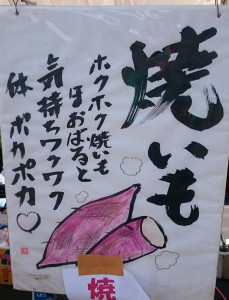 焼いも
ホクホク焼いも
ほおばると
気持ちワクワク
体 ポカポカ♡
焼